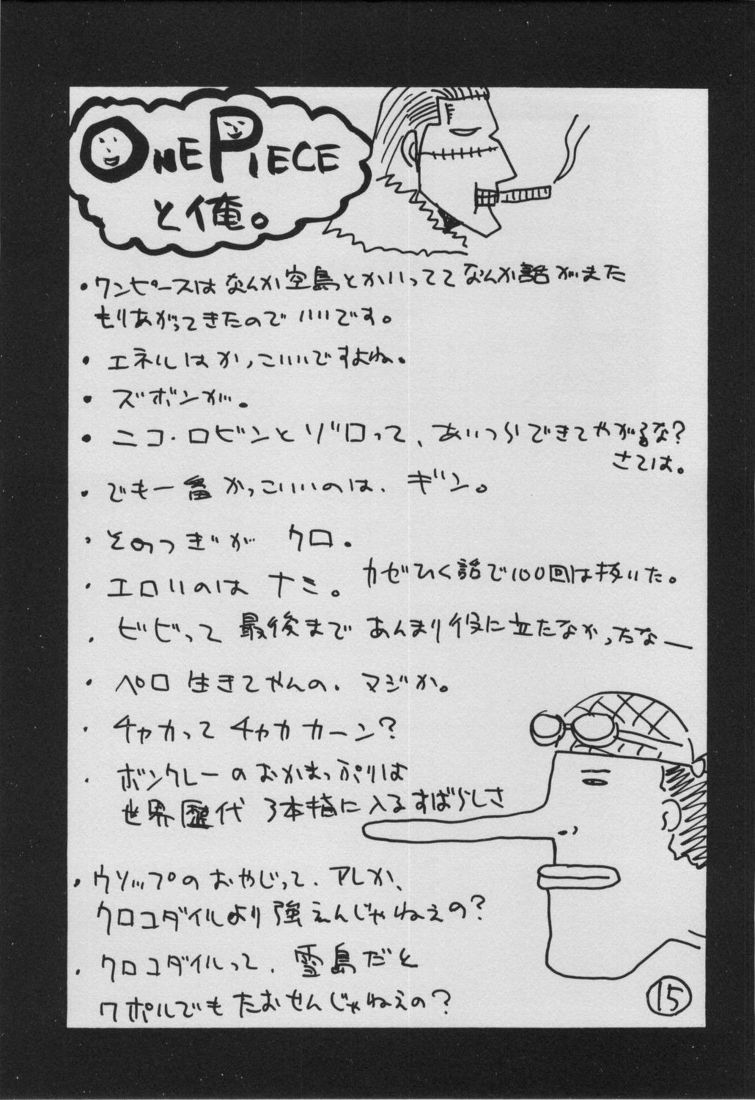 ONE PIECE
と俺。
・ワンピースはなんか空島とかいっててなんか話がまた
もりあがってきたのでいいです。
・エネルはかっこいいですよね。
・ズボンが。
・ニコ・ロビンとゾロって、あいつらできてやがるな?
さては。
・でも一番かっこいいのは、ギン。
・そのつぎが クロ。
・エロいのは ナミ。カゼひく話で100回は抜いた。
・ビビって最後まであんまり役に立たなかったなー
・ペロ生きてやんの、マジか。
・チャカってチャカカーン?
・ボンクレーのおかまっぷりは
世界歴代3本指に入るすばらしさ
・ウソップのおやじって、アレか、
クロコダイルより強えんじゃねえの?
・クロコダイルって、雪島だと
ワポルでもたおせんじゃねえの?
15